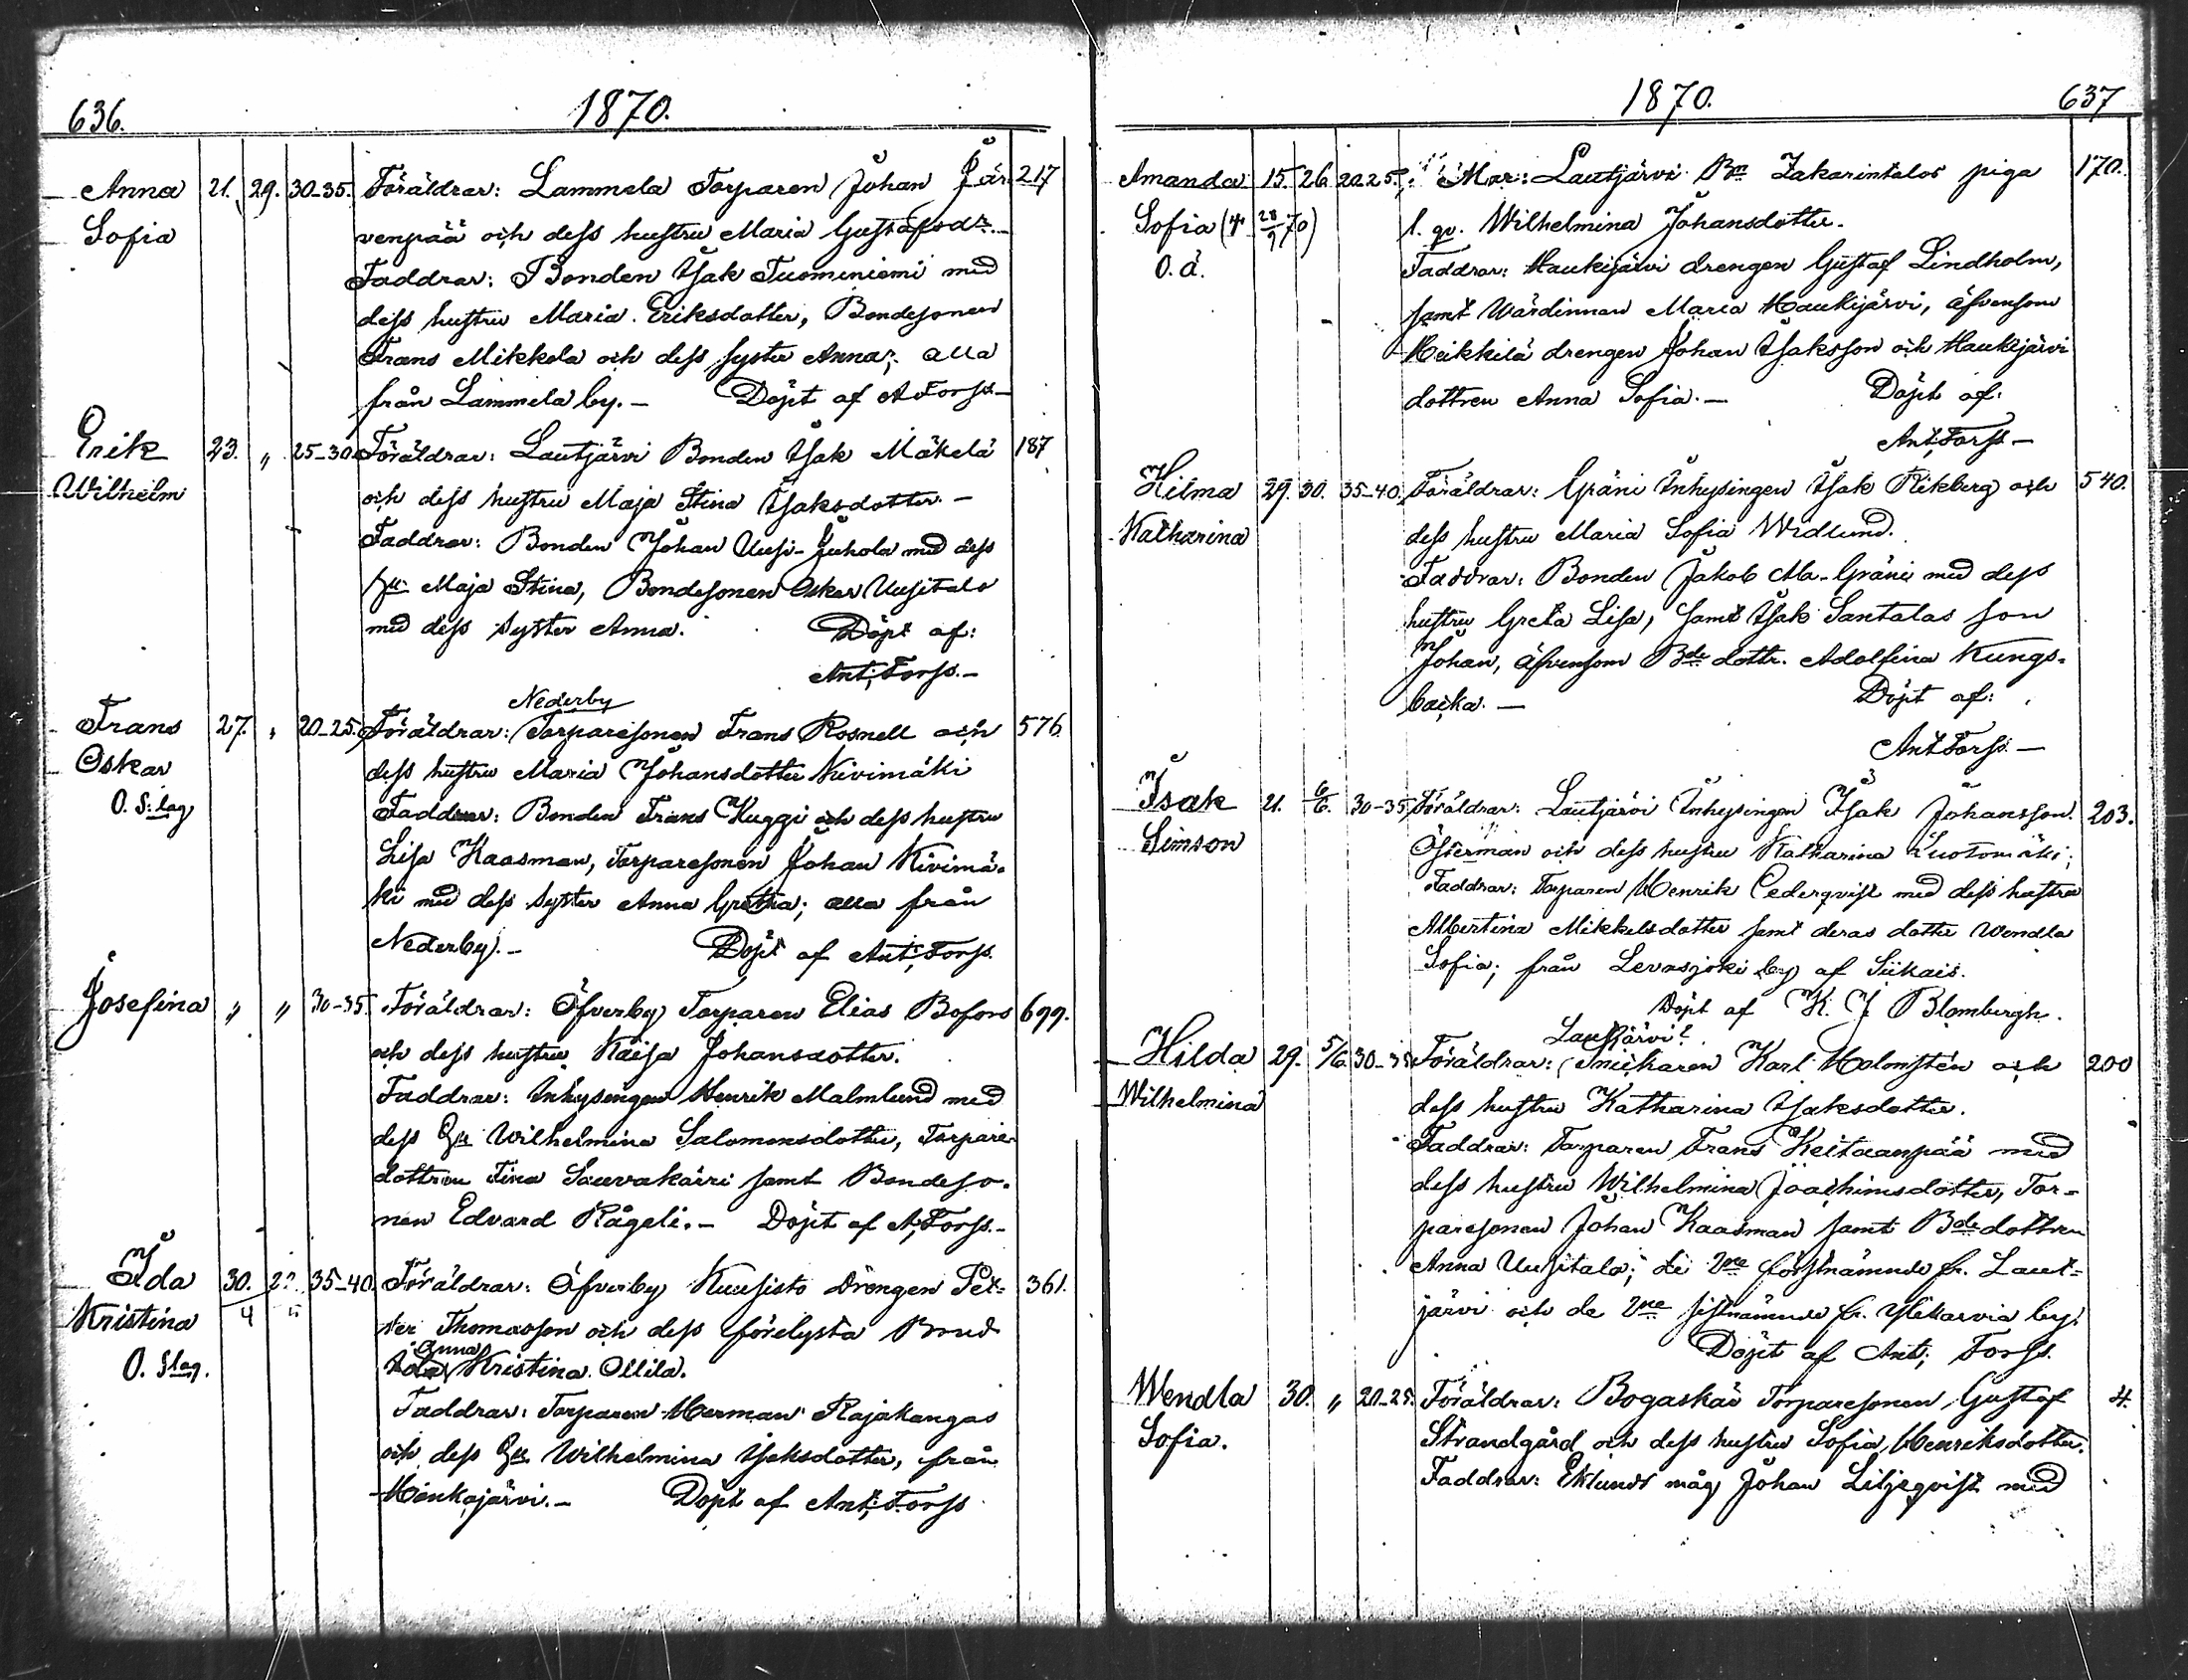 636. 1870.
Anna 21. 29. 30-35. Föräldrar: Lammela Torparen Johan Jär- 217
Sofia venpää och dess hustru Maria Gustafsdr.
Faddrar: Bonden Isak Tuominiemi med
dess hustru Maria Eriksdotter, Bondesonen
Frans Mikkola och dess syster Anna; alla
från Lammela by. – Döpt af A Forss. –
Erik 23. " 25-30. Föräldrar: Lautjärvi Bonden Isak Mäkelä 187
Wilhelm och dess hustru Maja Stina Isaksdotter. –
Faddrar: Bonden Johan Uusi-Juhola med dess
hu Maja Stina, Bondesonen Oskar Uusitalo
med dess syster Anna. Döpt af:
Ant; Forss. –
Nederby
Frans 27. " 20-25. Föräldrar: Torparesonen Frans Rosnell och 576
Oskar dess hustru Maria Johansdotter Kivimäki
O. S:lag Faddrar: Bonden Frans Kuggi och dess hustru
Lisa Kaasman, Torparesonen Johan Kivimä-
ki med dess syster Anna Gretha; alla från
Nederby. – Döpt af Ant; Forss.
Josefina " " 30-35. Föräldrar: Öfverby Torparen Elias Bofors 699.
och dess hustru Kaisa Johansdotter.
Faddrar: Inhysingen Henrik Malmlund med
dess Hu Wilhelmina Salomonsdotter, Torpare-
dottren Fina Sauvakäiri samt Bondeso-
nen Edvard Rågeli. – Döpt af A; Forss. –
Ida 30. 35-40. Föräldrar: Öfverby Kuusisto Drengen Pet- 361.
Kristina 4 ter Thomasson och dess förelysta Brud
Anna
O. Slag. Ida Kristina Ollila.
Faddrar: Torparen Herman Rajakangas
och dess Hu. Wilhelmina Isaksdotter, från
Honkajärvi. – Döpt af Ant; Forss.
1870. 637
Amanda 15. 26. 20-25. Mor: Lautjärvi Bn Zakarintalos piga 170.
Sofia († 28/9 70) l. qv. Wilhelmina Johansdotter.
O. ä. Faddrar: Haukijärvi drengen Gustaf Lindholm,
samt Wärdinnan Maria Haukijärvi, äfvensom
Heikkilä drengen Johan Isaksson och Haukijärvi
dottren Anna Sofia. – Döpt af:
Ant Forss –
Hilma 29. 30. 35-40. Föräldrar: Gräni Inhysingen Isak Rikberg och 540.
Katharina dess hustru Maria Sofia Widlund.
Faddrar: Bonden Jakob Ma-Gräni med dess
hustru Greta Lisa, samt Isak Santalas son
Johan, äfvensom Bde dottr. Adolfina Kungs-
backa. – Döpt af:
Ant Forss. –
Isak 21. 6/6. 30-35. Föräldrar: Lautjärvi Inhysingen Isak Johansson 203.
Simson Österman och dess hustru Katharina Luotomäki;
Faddrar: Torparen Henrik Cederqvist med dess hustru
Albertina Mikkelsdotter samt deras dotter Wendla
Sofia; från Levasjoki by af Siikais.
Döpt af K. J Blombergh.
Lautjärvi?
Hilda 29. 5/6. 30-35 Föräldrar: Snickaren Karl Holmstén och 200
Wilhelmina dess hustru Katharina Isaksdotter.
Faddrar: Torparen Frans Keitaanpää med
dess hustru Wilhelmina Joachimsdotter, Tor-
paresonen Johan Kaasman samt Bde dottren
Anna Uusitalo; de 2ne förstnämnde fr. Laut-
järvi och de 2ne sistnämnde fr. Ylikarvia by.
Döpt af Ant; Forss.
Wendla 30. " 20-25. Föräldrar: Bogaskär Torparesonen Gustaf 4.
Sofia. Strandgård och dess hustru Sofia Henriksdotter.
Faddrar: Eklunds måg Johan Liljeqvist med